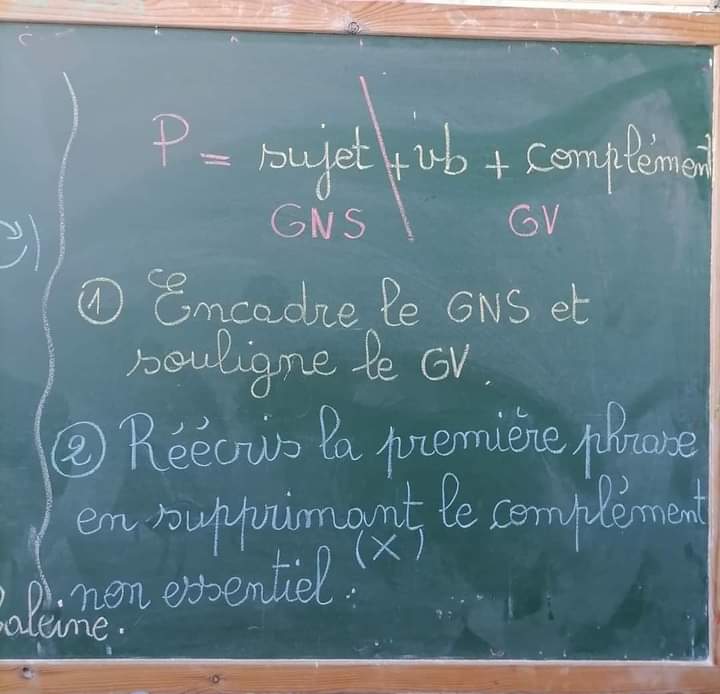 P = sujet + vb + complément
GNS GV
① Encadre le GNS et
souligne le GV.
② Réécris la première phrase
en supprimant le complément
(X)
non essentiel.